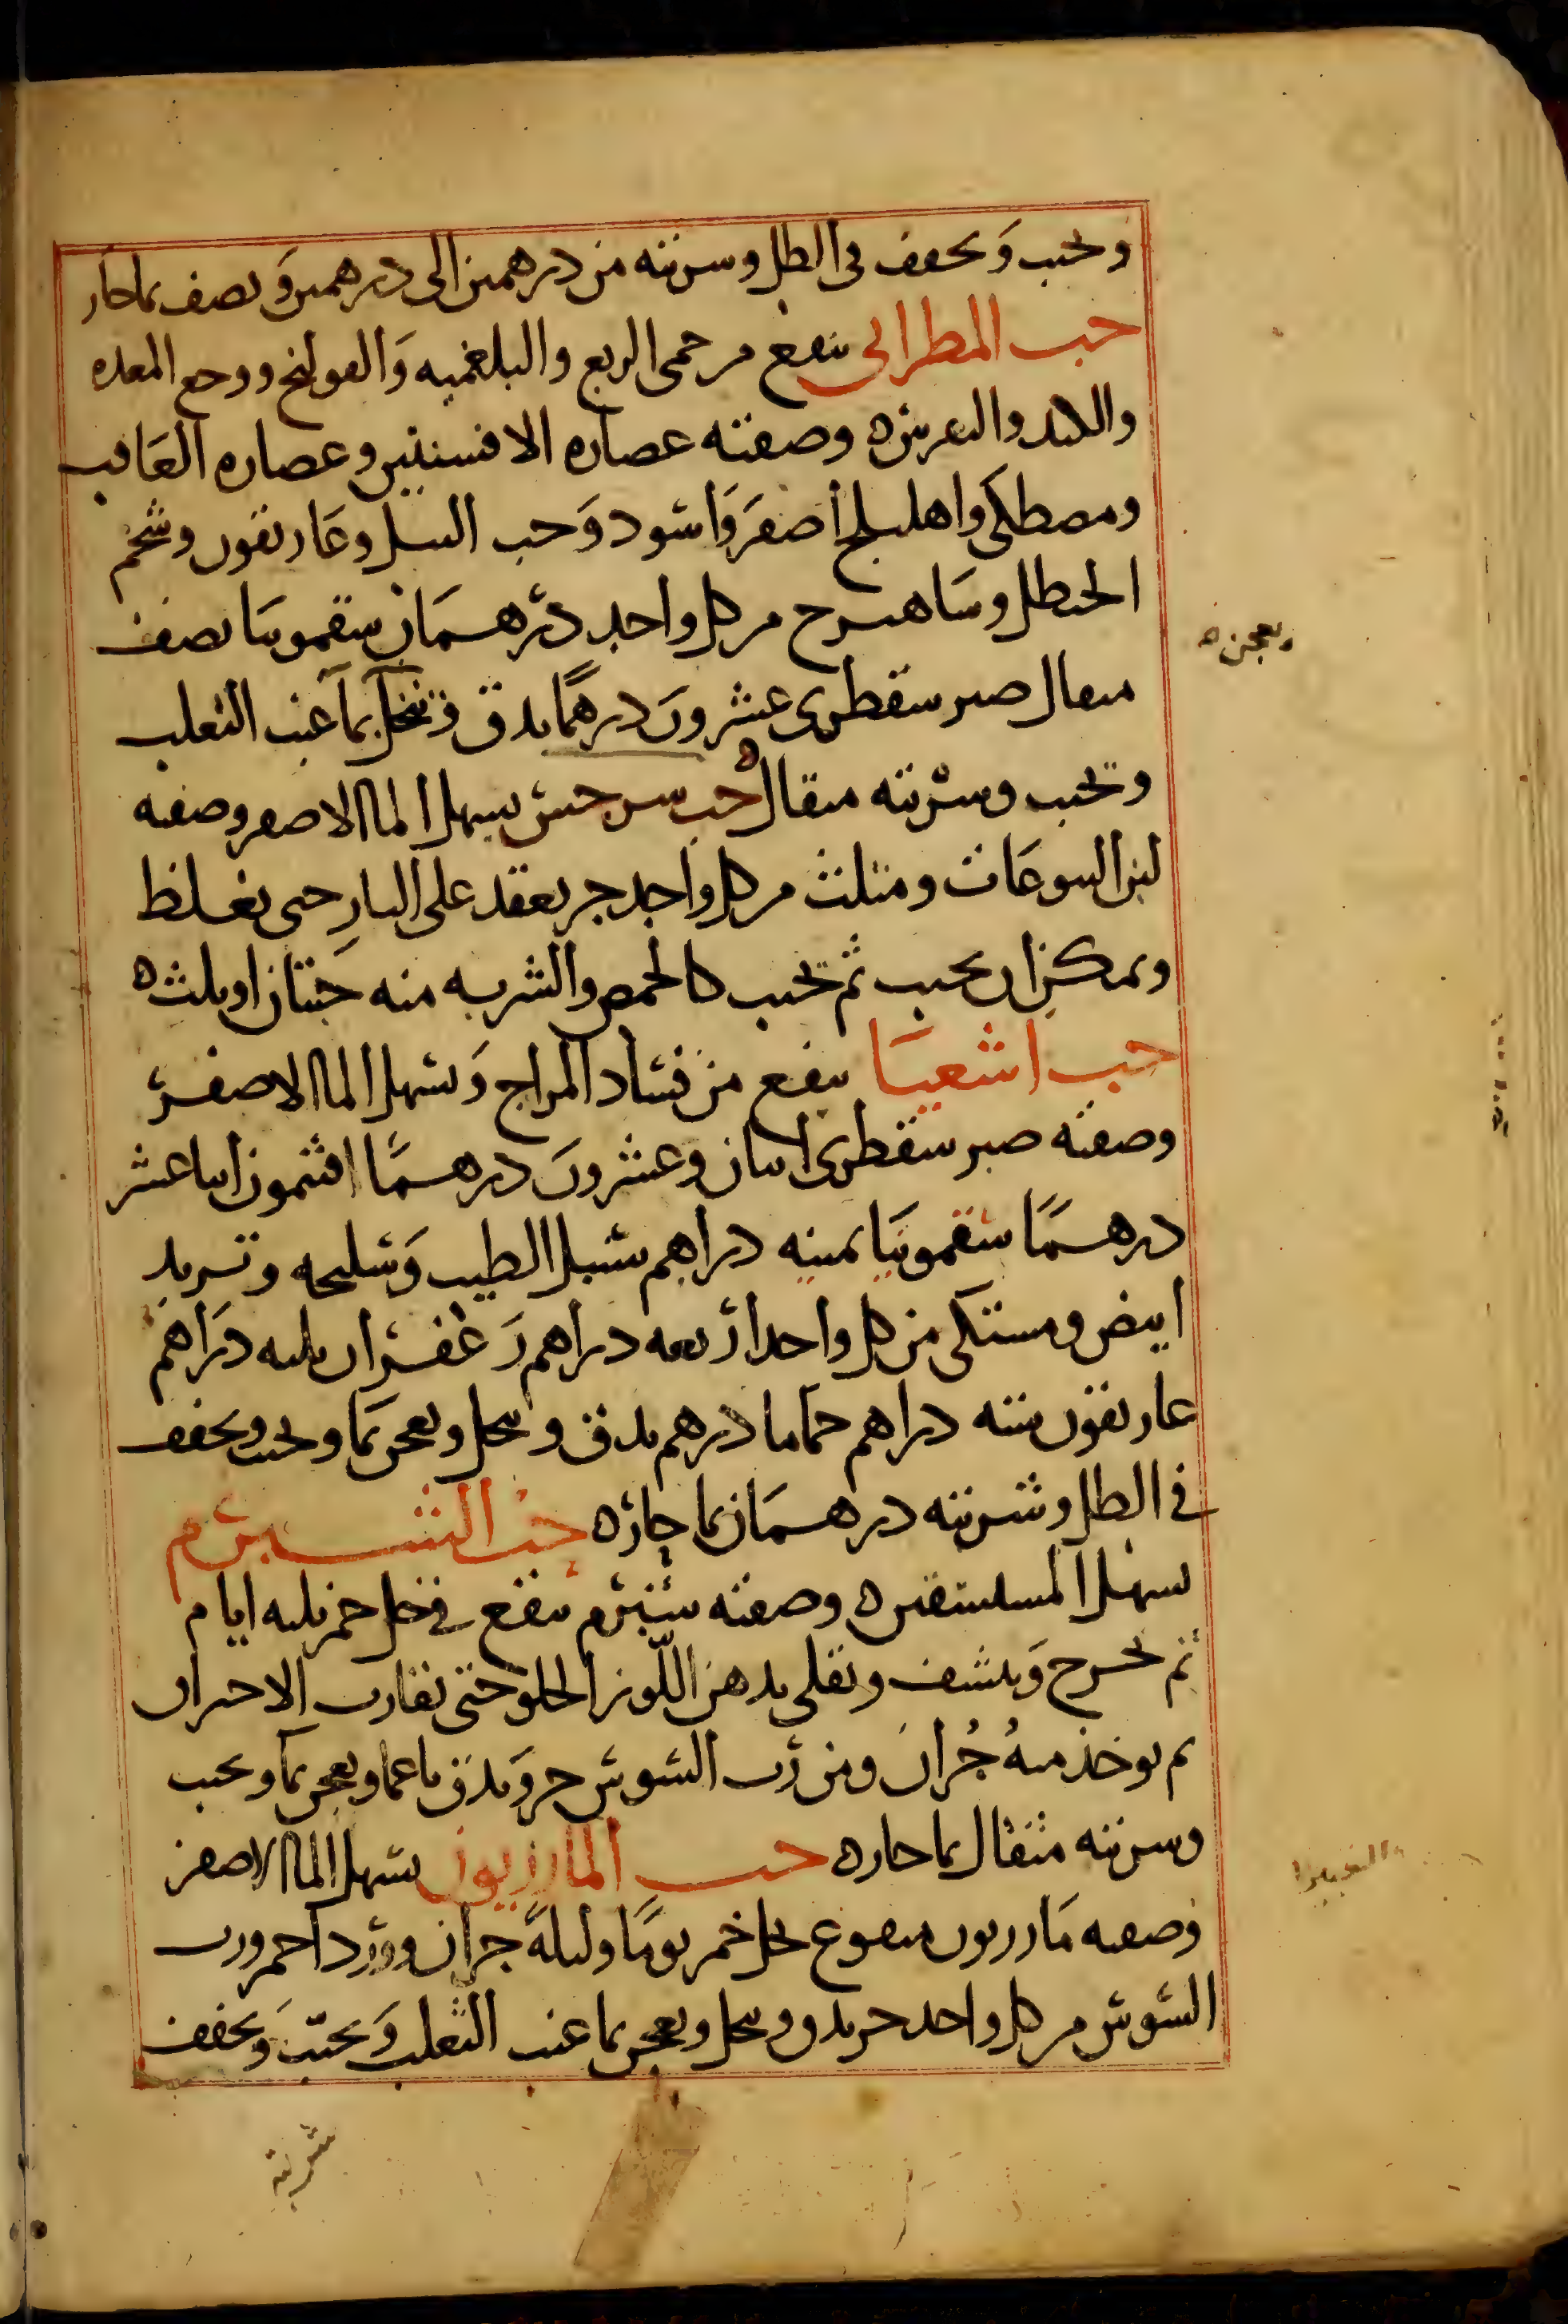 ويحبب ويجفف في الظل وشربته من درهمين الى درهمين ونصف بماحار
حب المطرانى ينفع من حمى الربع والبلغميه والقولنج ووجع المعده
والكبد والنقرس وصفته عصاره الافسنتين وعصاره الغافت
ومصطكى واهليلج أصفر وأسود وحب النيل وغاريقون وشحم
الحنظل وشاهترج من كل واحد درهمان سقمونيا نصف
مثقال صبر سقطرى عشرون درهمًا يدق وينخل بمآ عنب الثعلب
ويعجنه
ويحبب وشربته مثقال حب سرجس يسهل الما الاصفر وصفته
لبن اليتوعات ومثلث من كل واحد جز يعقد على النار حتى يغلظ
ويمكن ان يحبب ثم يحبب كالحمص والشربه منه حبتان او ثلث
حب اشعيا ينفع من فساد المزاج ويسهل الما الاصفر
وصفته صبر سقطرى اثنان وعشرون درهمًا افثيمون اثنا عشر
درهمًا سقمونيا ثمنيه دراهم سنبل الطيب وسليخه وتربد
ابيض ومستكى من كل واحد اربعه دراهم زعفران ثلثه دراهم
غاريقون سته دراهم حماما درهم يدق وينخل ويعجن بما ويحبب ويجفف
في الظل وشربته درهمان بما حار حب الشبرم
يسهل المستسقين وصفته شبرم ينقع في خل خمر ثلثه ايام
ثم يخرج وينشف ويقلى بدهن اللّوز الحلو حتى يقارب الاحتراق
ثم يوخذ منهُ جُزان ومن رُب السوس جز ويدق ناعما ويعجن بمآ ويحبب
وشربته مثقال بما حار حب المازريون يسهل الما الاصفر
وصفته مازريون منقوع بخل خمر يومًا وليلةً جزان وورد احمر ورب
السوس من كل واحد جز يدق وينخل ويعجن بما عنب الثعلب ويحبّب ويجفف
شربته